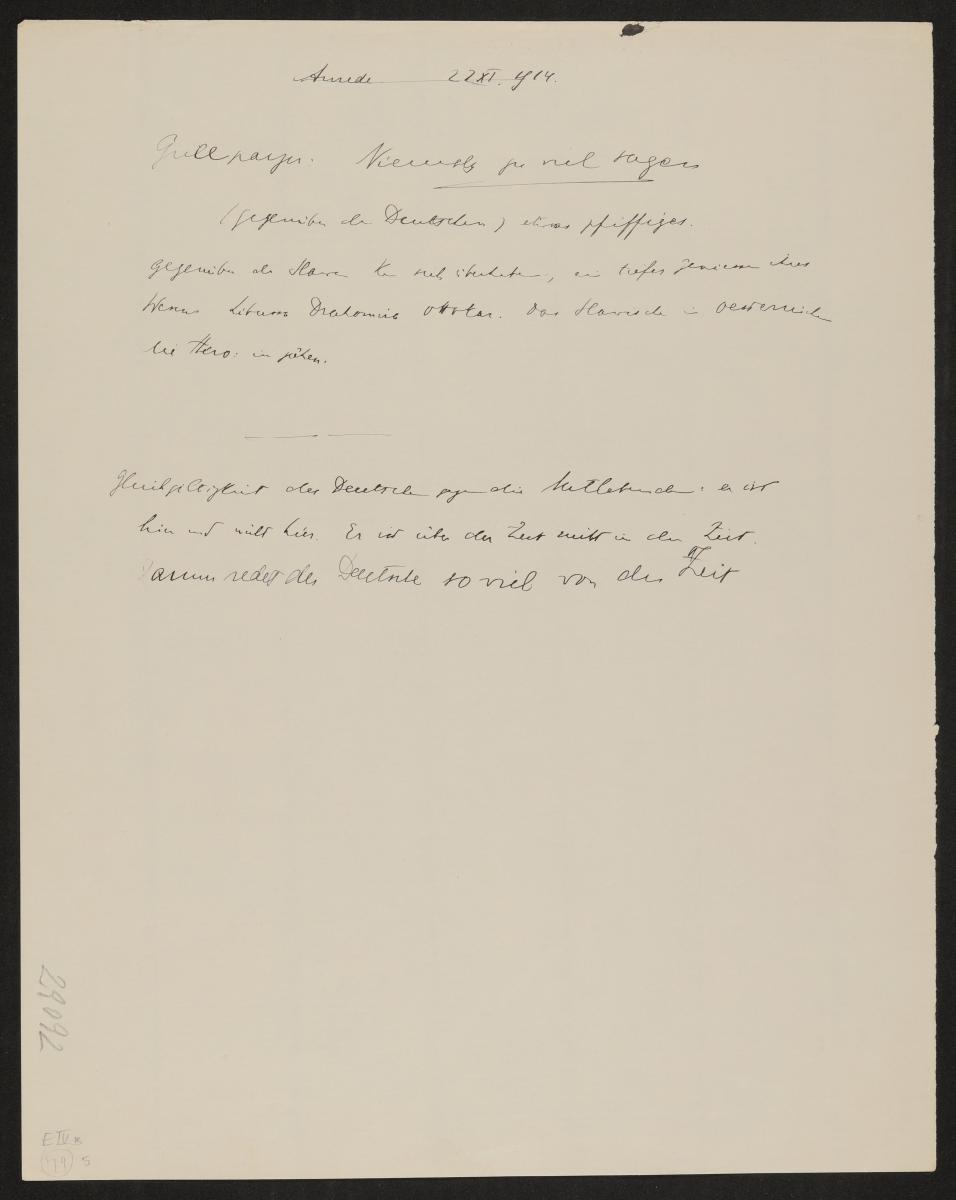 Anrede 22 XI. 1914.
Grillparzer. Niemals zu viel sagen
(gegenüber den Deutschen) etwas pfiffiges.
gegenüber den Slaven kein sich überheben, ein tiefes
Wesens Libussa Drahomira Ottokar. Das Slavische in Oesterreich
die Hero: in
Gleichgiltigkeit des Deutschen gegen die Mitlebenden: er ist
hin und nicht hier. Er ist über der Zeit nicht in der Zeit.
Darum redet der Deutsche so viel von der Zeit
29092
E IV
179 5